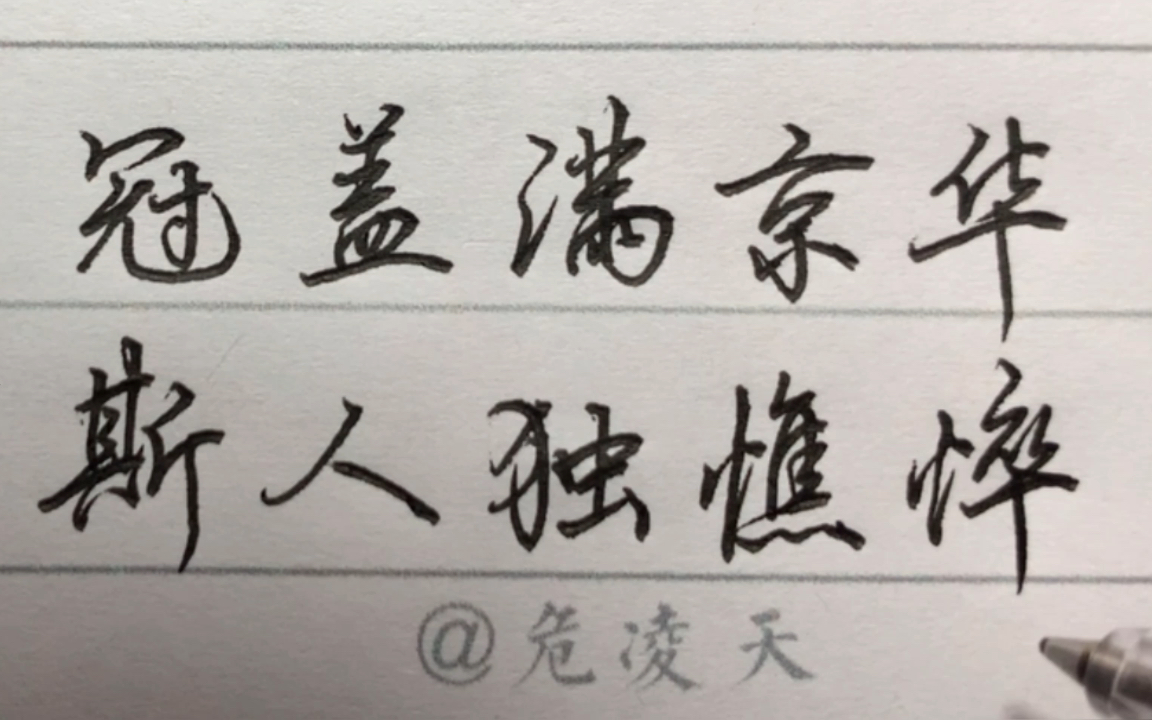 冠盖满京华
斯人独憔悴
@危凌天